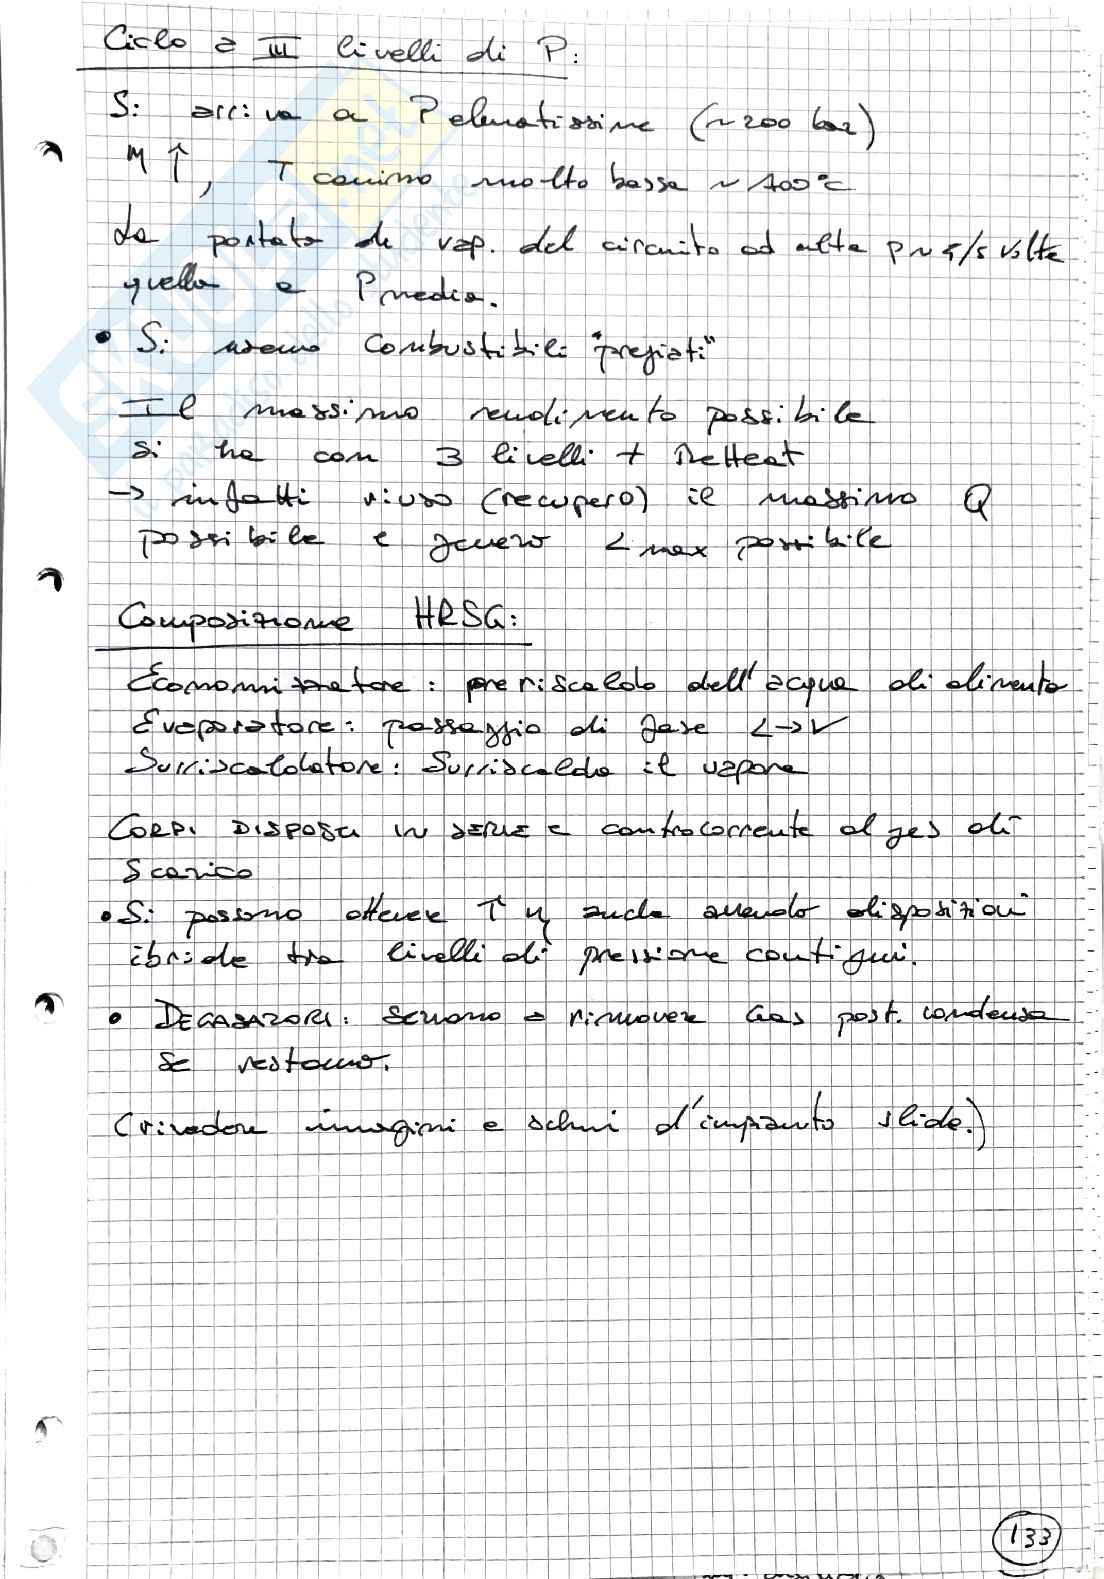 Ciclo a III livelli di P:
Si arriva a P elevatissime (~200 bar)
η ↑, T camino molto bassa ~ 100°C
La portata di vap. del circuito ad alta p ~ 4/5 volte
quella a P media.
• Si usano combustibili "pregiati"
Il massimo rendimento possibile
si ha con 3 livelli + ReHeat
→ infatti riuso (recupero) il massimo Q
possibile e genero L max possibile
Composizione HRSG:
Economizzatore: preriscaldo dell'acqua di alimento
Evaporatore: passaggio di fase L→V
Surriscaldatore: Surriscalda il vapore
CORPI DISPOSTI IN SERIE e controcorrente al gas di
scarico
• Si possono ottenere ↑ η anche avendo disposizioni
ibride tra livelli di pressione contigui.
• DEGASATORI: servono a rimuovere Gas post. condensa
se restano.
(rivedere immagini e schemi d'impianto slide.)
133